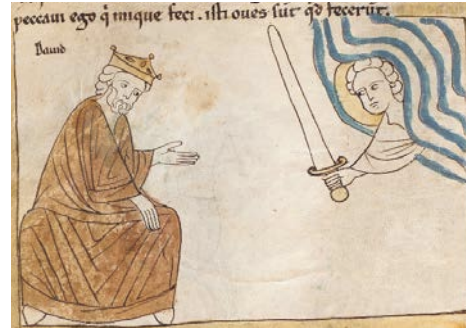 peccaui ego q̄ inique feci. isti oues sūt qd fecerūt.
Dauid